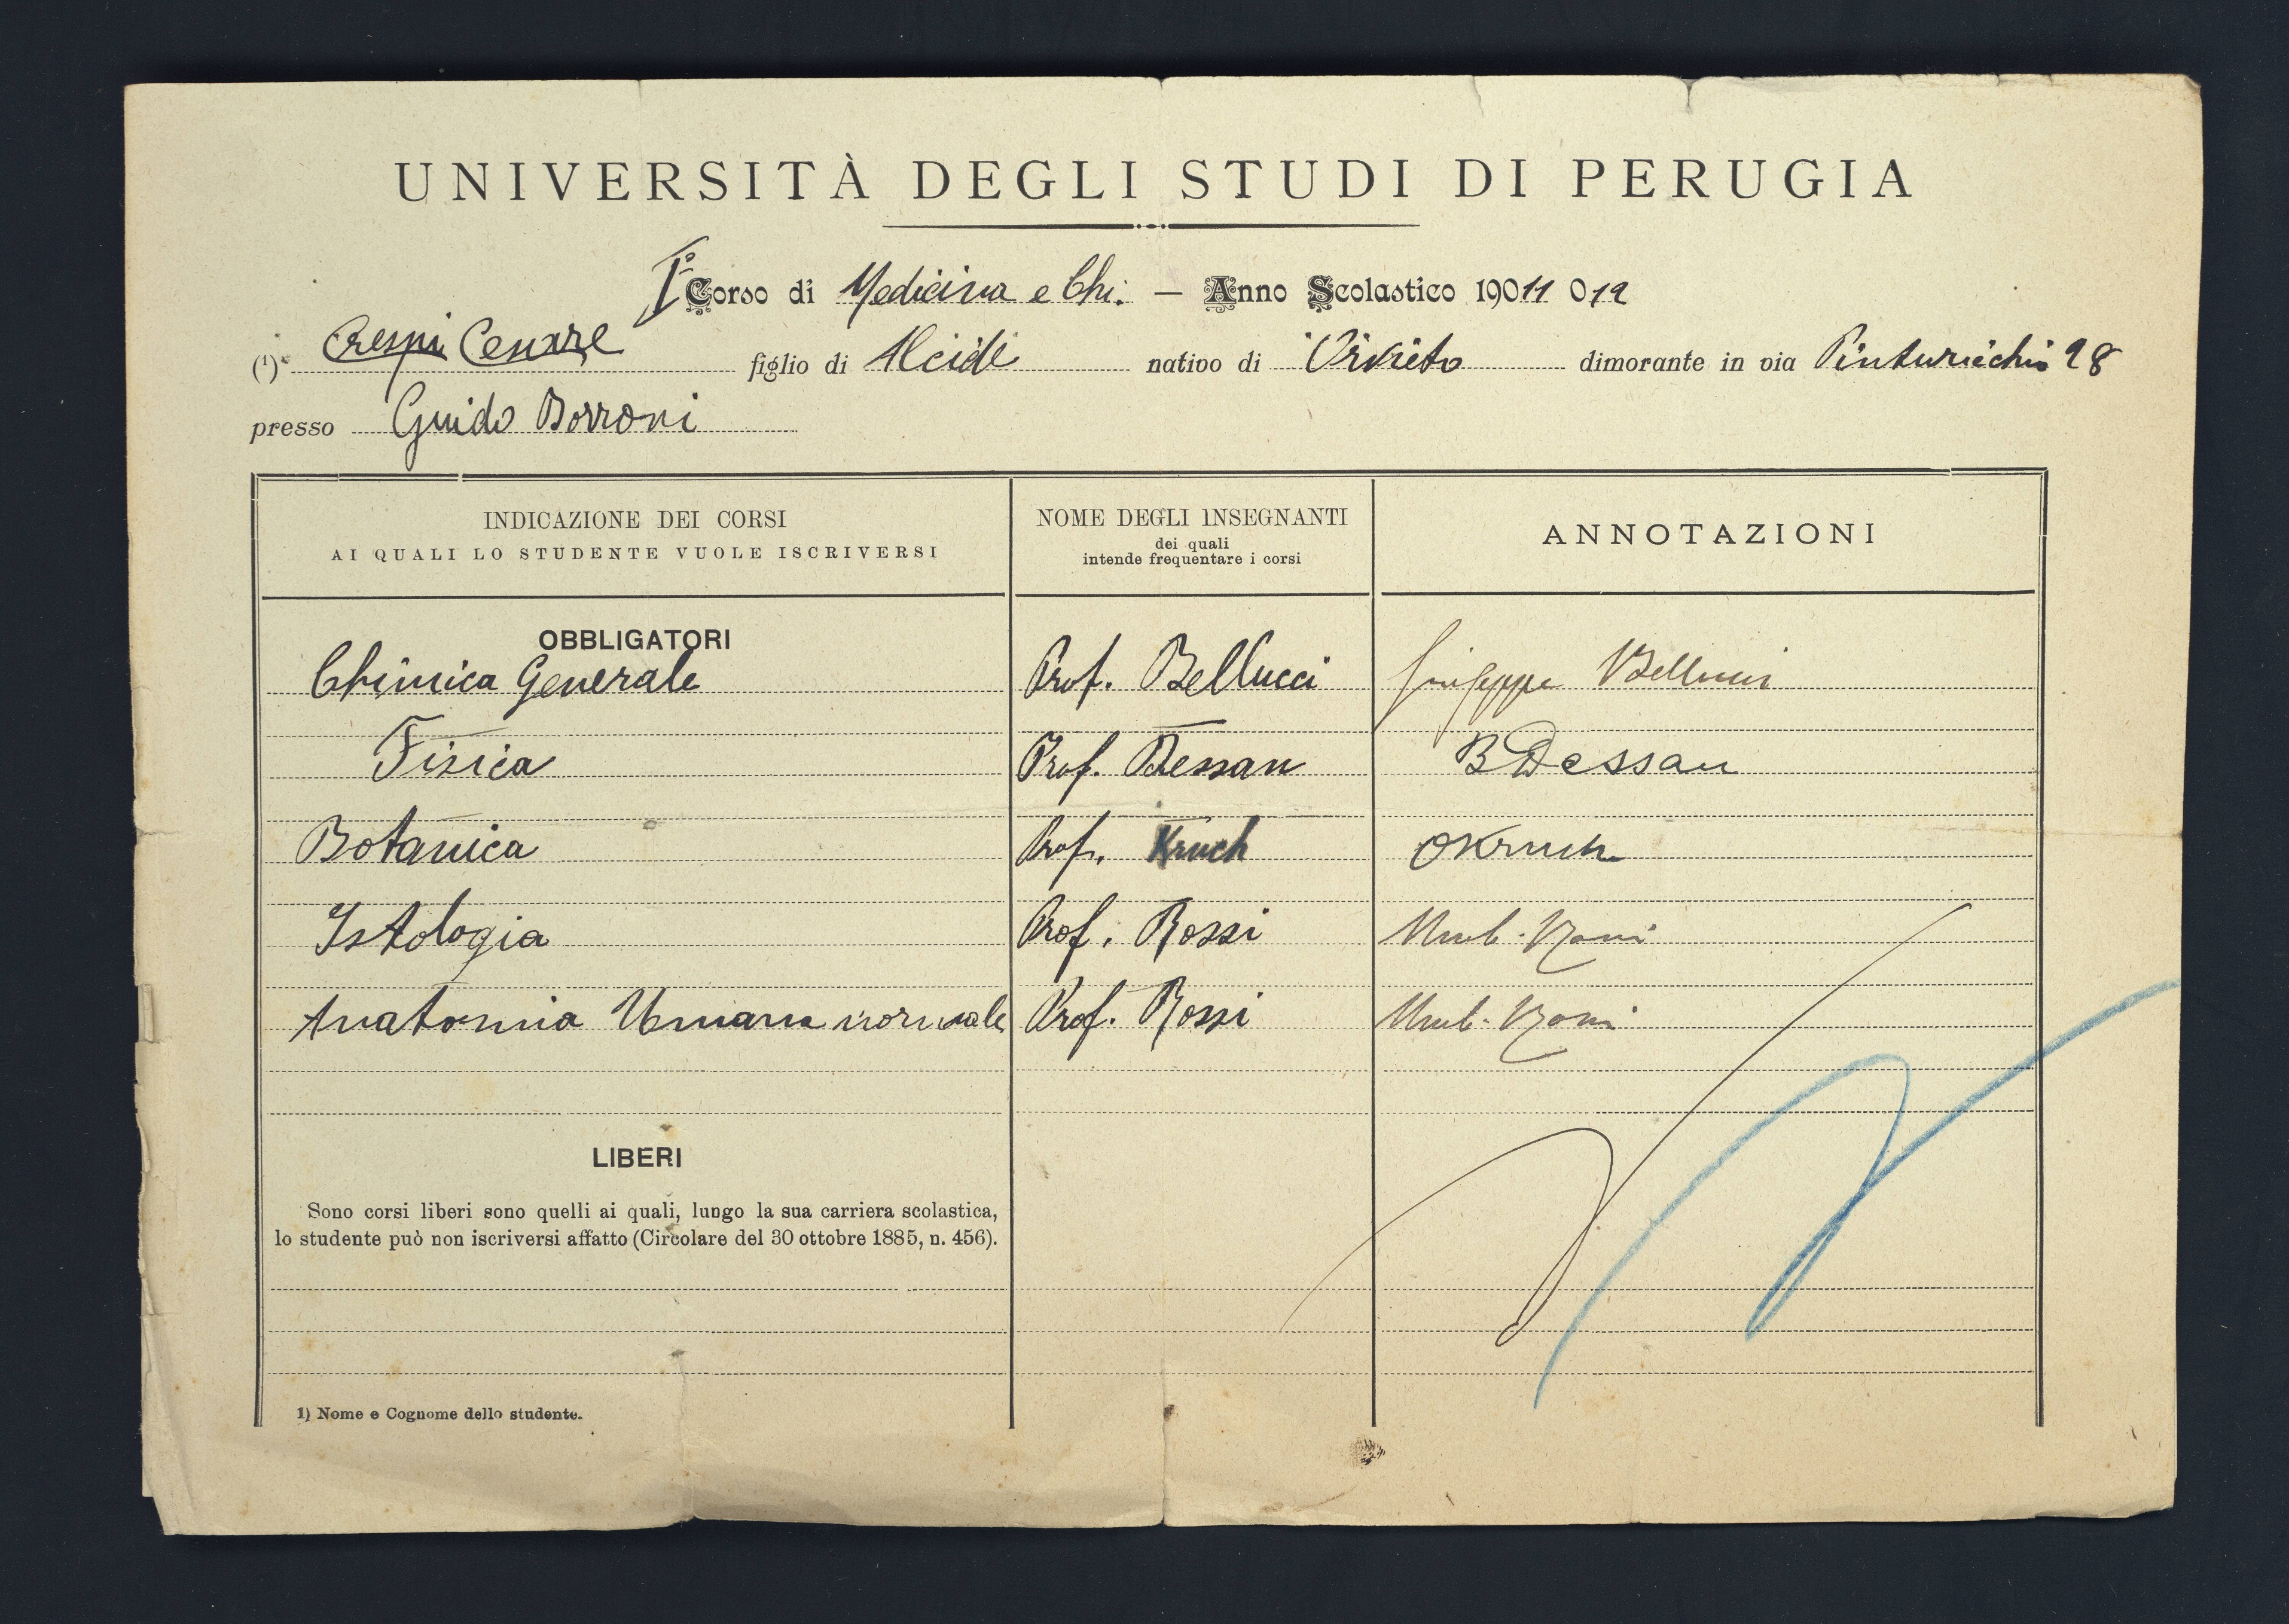 UNIVERSITÀ DEGLI STUDI DI PERUGIA
I° Corso di Medicina e Chi. — Anno Scolastico 19011 012
(1) Crespi Cesare figlio di Alcide nativo di Orvieto dimorante in via Pinturicchio 28
presso Guido Borroni
INDICAZIONE DEI CORSI
AI QUALI LO STUDENTE VUOLE ISCRIVERSI
NOME DEGLI INSEGNANTI
dei quali
intende frequentare i corsi
ANNOTAZIONI
OBBLIGATORI
Chimica Generale Prof. Bellucci Giuseppe Bellucci
Fisica Prof. Dessau B Dessau
Botanica Prof. Kruch O Kruch
Istologia Prof. Rossi Umb. Rossi
Anatomia Umana normale Prof. Rossi Umb. Rossi
LIBERI
Sono corsi liberi sono quelli ai quali, lungo la sua carriera scolastica,
lo studente può non iscriversi affatto (Circolare del 30 ottobre 1885, n. 456).
1) Nome e Cognome dello studente.